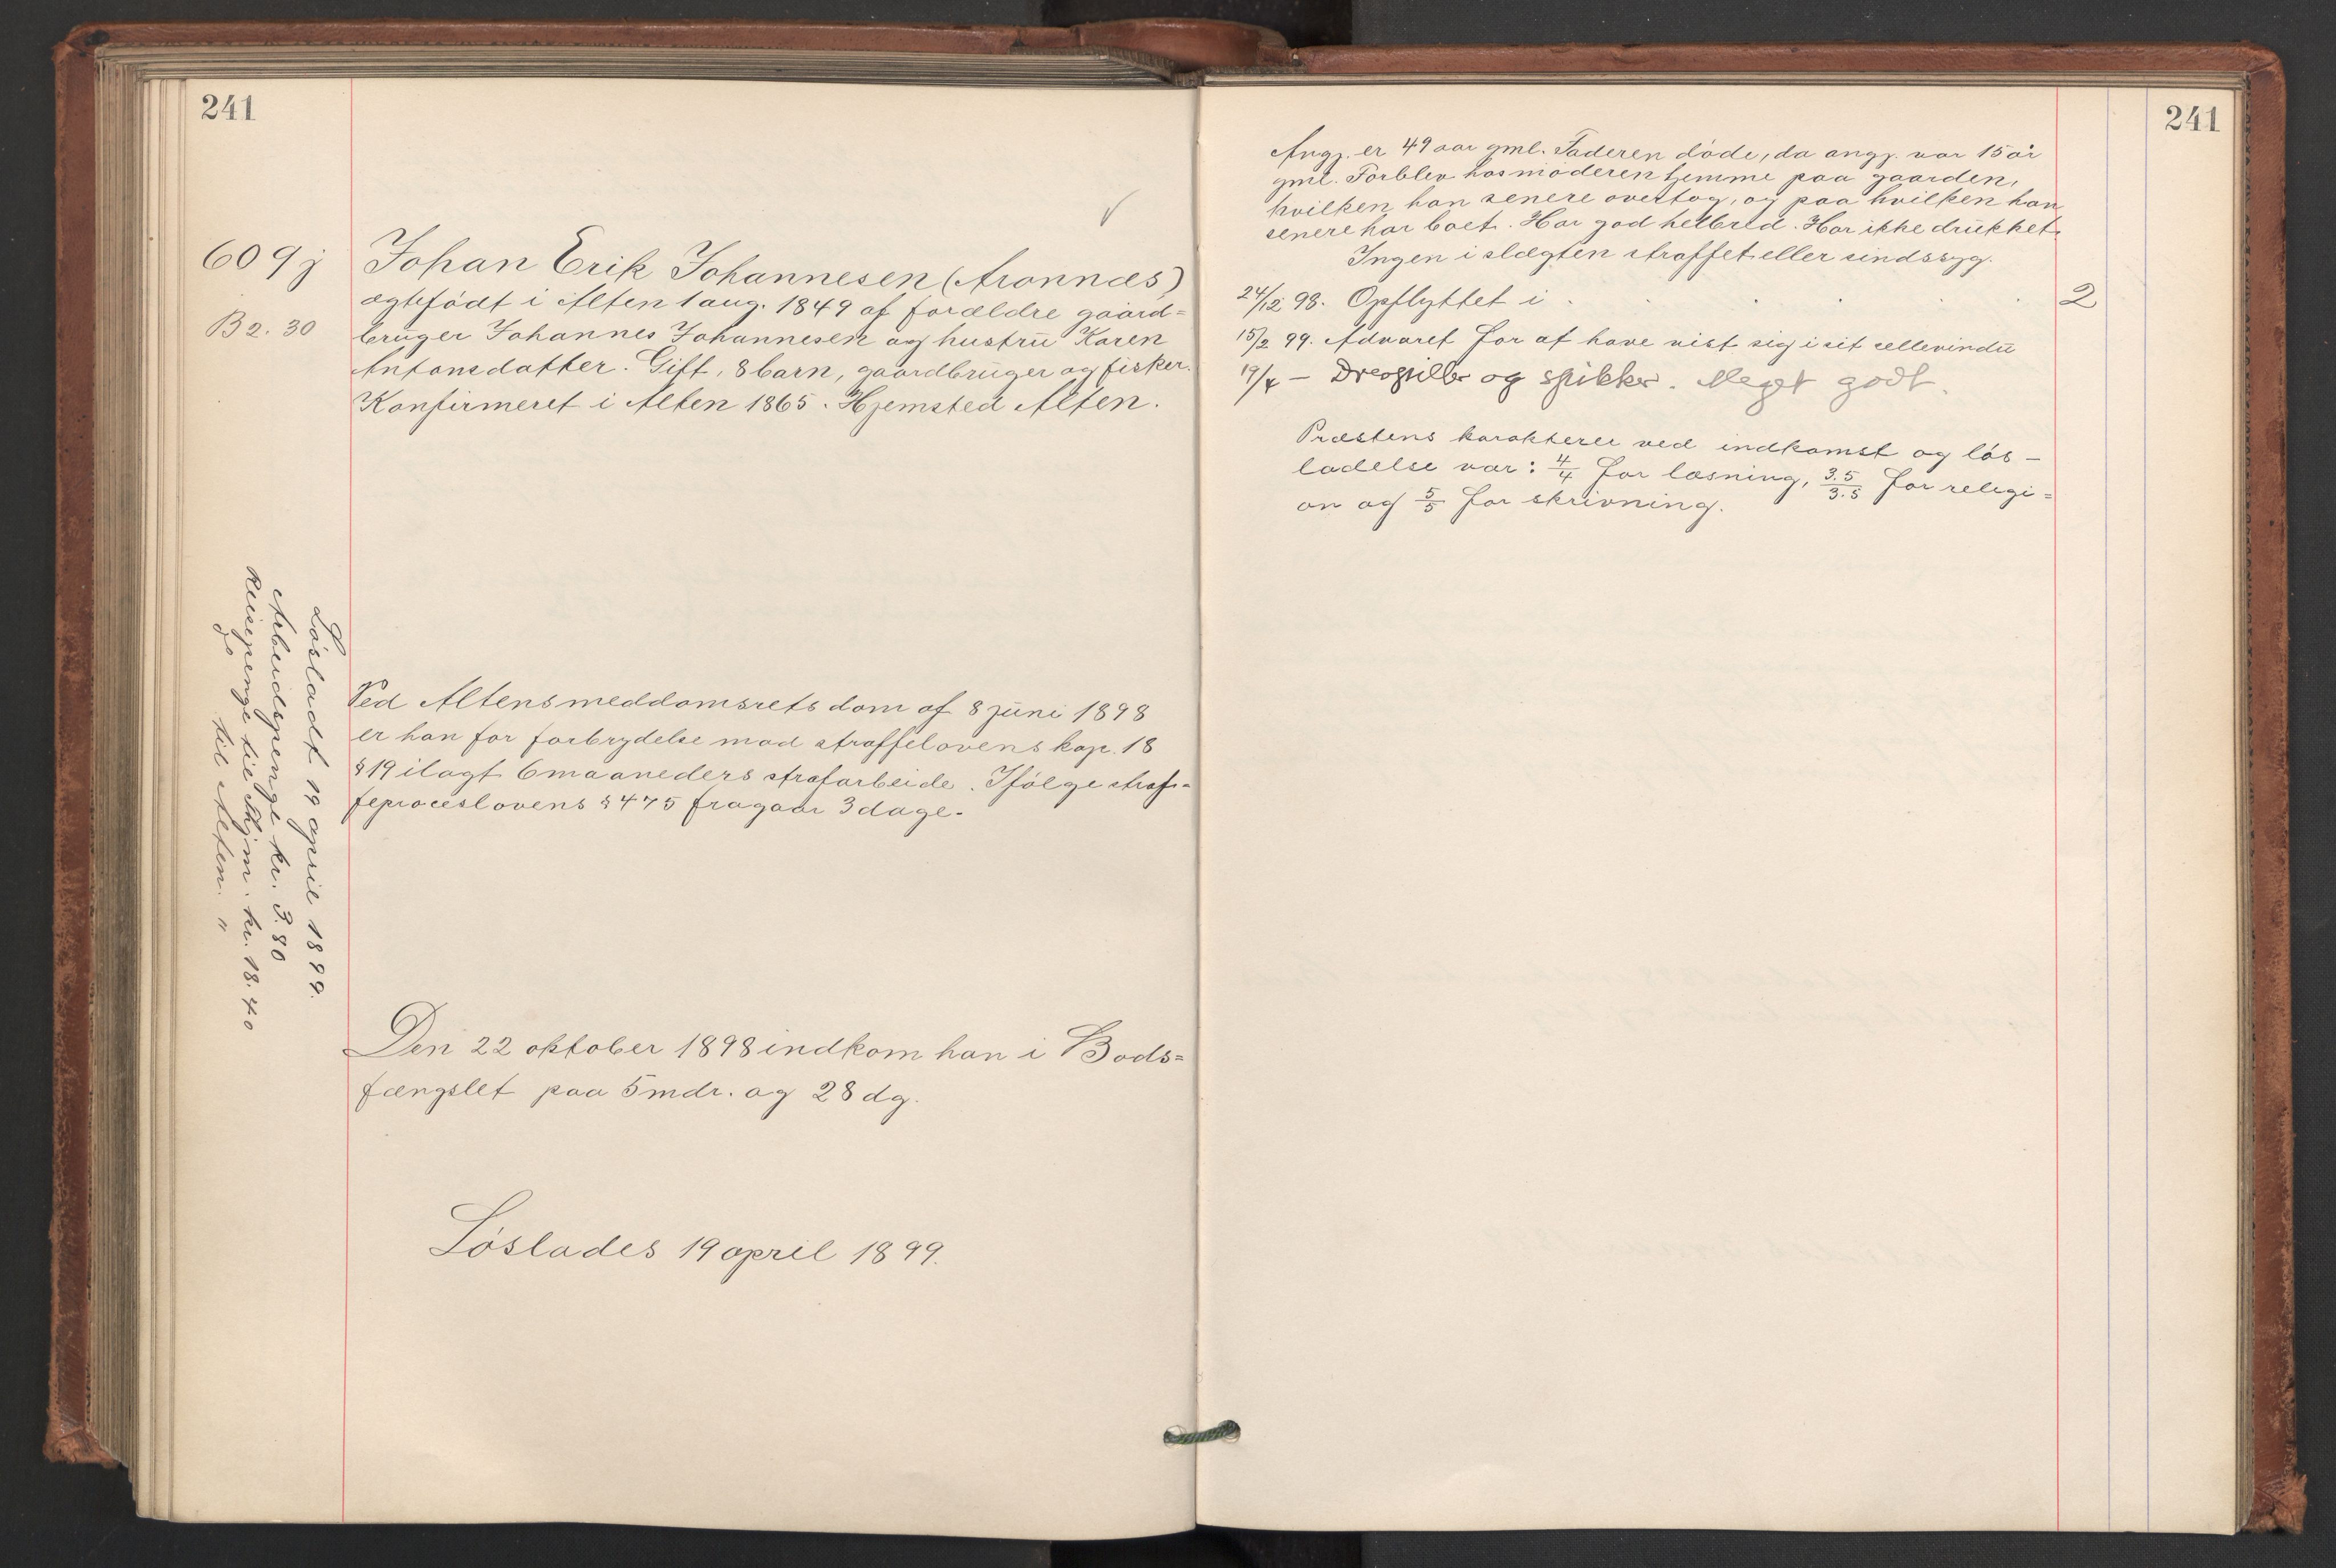 241
609j
B2. 30
Johan Erik Johannesen (Aronnæs)
ægtefødt i Alten 1 aug. 1849 af forældre gaard=
bruger Johannes Johannesen og hustru Karen
Antonsdatter. Gift, 8 barn, gaardbruger og fisker.
Konfirmeret i Alten 1865. Hjemsted Alten.
Ved Altens meddomsrets dom af 8 juni 1898
er han for forbrydelse mod straffelovens kap. 18
§ 19 ilagt 6 maaneders strafarbeide. Ifølge straf=
feproceslovens § 475 fragaar 3 dage.
Den 22 oktober 1898 indkom han i Bods=
fængslet paa 5 mdr. og 28 dg.
Løslades 19 april 1899.
Løsladt 19 april 1899.
Arbeidspenge kr. 3.80
Reisepenge til Thjm. kr. 18.40
do til Alten. "
241
Angj. er 49 aar gml. Faderen døde, da angj. var 15 år
gml. Forblev hos moderen hjemme paa gaarden,
hvilken han senere overtog, og paa hvilken han
senere har boet. Har god helbred. Har ikke drukket.
Ingen i slægten straffet eller sindssyg.
24/12 98. Opflyttet i . . . . . 2
15/2 99. Advaret for at have vist sig i sit cellevindu
19/4 — og spikker. Meget godt.
Præstens karakterer ved indkomst og løs-
ladelse var: 4/4 for læsning, 3.5/3.5 for religi=
on og 5/5 for skrivning.